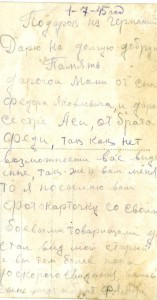 1-7-45 год
Подарок из Германии
Дарю на долгую добрую
Память
дорогой Маме от сына
Федора Яковлевича и дорогой
сестре Асе, от брата
Феди, так как нет
возможности вас виде
мне, так же и вам меня
то я посылаю вам
фотокарточку со своим
боевыми товарищами
стал вид мой старый
и вот там
скорого свидания